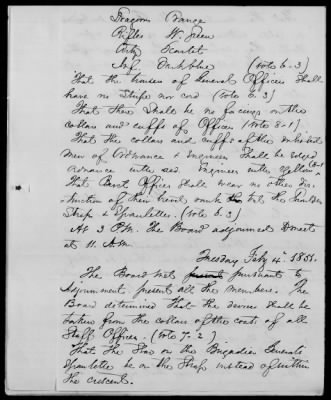 Dragoons Orange
Rifles W. Green
Arty Scarlet
Inf. Dark blue (vote 6.3)
That the trousers of General Officers shall
have no Stripe nor cord (Vote 6.3)
That there shall be no facings on the
collars and cuffs of Officers (Vote 8-1)
That the collars and cuffs of the enlisted
men of Ordnance & Engineers shall be edged
Ordnance with red Engineers with yellow (8-1
That Brvt Officers shall wear no other dis-
tinction of their brevet rank but the Shoulder
Strap & Epaulette. (Vote 6.3)
At 3 P.M. The Board adjourned to meet
at 11. A.M.
Tuesday Feby 4th 1851.
The Board met pursuant to
Adjournment, present all the members. The
Board determined that the devices shall be
taken from the collars of the coats of all
Staff Officers. (Vote 7-2)
That the Star on the Brigadier Generals
Epaulette be on the Strap instead of within
the crescent.